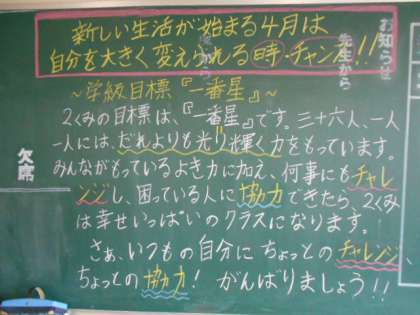 新しい生活が始まる4月は
自分を大きく変えられる時・チャンス!!
お知らせ
先生から
から
~学級目標『一番星』~
2くみの目標は、『一番星』です。三十六人、一人
一人には、だれよりも光り輝く力をもっています。
みんながもっているよき力に加え、何事にもチャレ
ンジし、困っている人に協力できたら、2くみ
は幸せいっぱいのクラスになります。
さぁ、いつもの自分にちょっとのチャレンジ、
ちょっとの協力! がんばりましょう!!
欠席